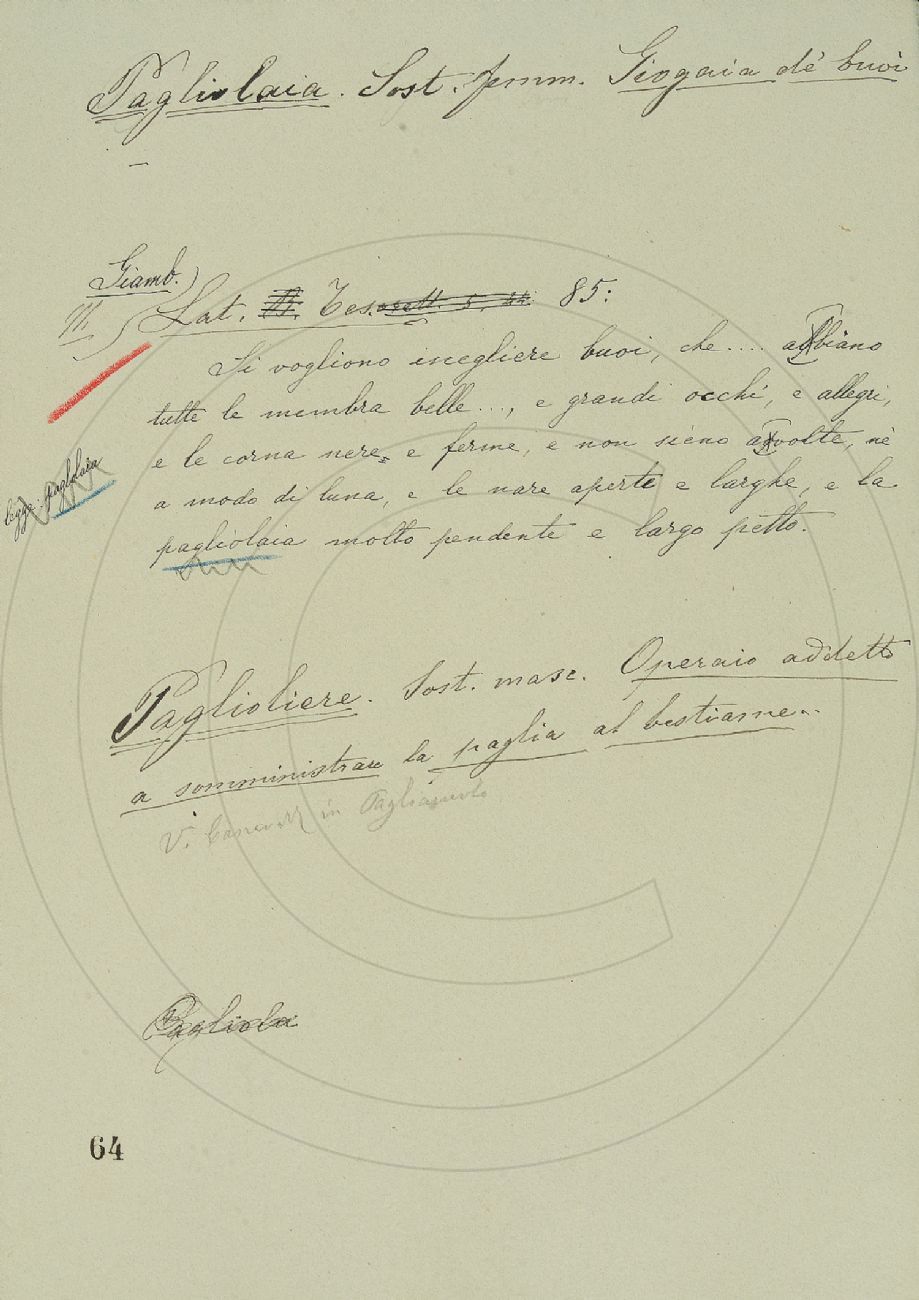 Pagliolaia. Sost. femm. Giogaia de' buoi
Giamb.)
Lat. B. Tesorett. 5. 44. 85:
Si vogliono iscegliere buoi, che .... abbiano
tutte le membra belle ..., e grandi occhi, e allegri,
e le corna nere, e ferme, e non sieno avvolte, nè
a modo di luna, e le nare aperte e larghe, e la
legge: pagliolaia
pagliolaia molto pendente e largo petto.
Paglioliere. Sost. masc. Operaio addetto
a somministrare la paglia al bestiame.
V. in Pagliaiuolo
Pagliola
64